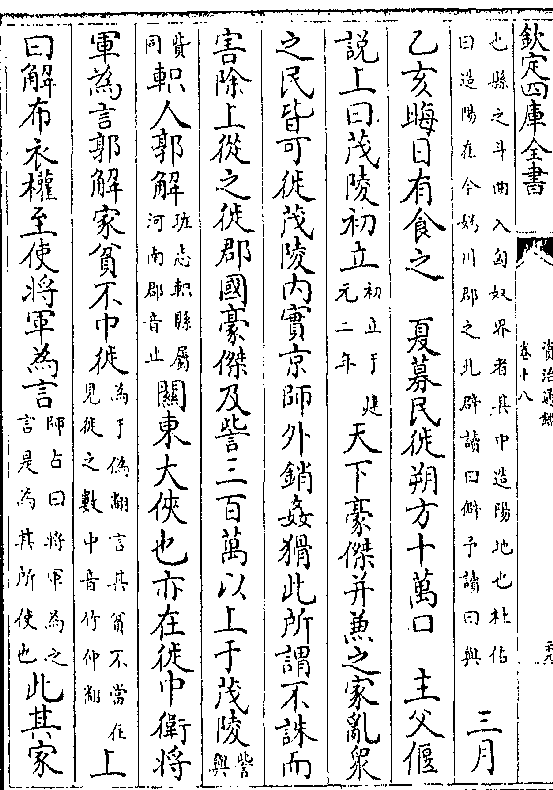 欽定四庫全書
資治通鑑
卷十八
也縣之斗曲入匈奴界者其中造陽地也杜佑
曰造陽在今媯川郡之北辟讀曰僻予讀曰與
三月
乙亥晦日有食之　夏募民徙朔方十萬口　主父偃
說上曰茂陵初立
初立于建
元二年
天下豪傑并兼之家亂衆
之民皆可徙茂陵內實京師外銷姦猾此所謂不誅而
害除上從之徙郡國豪傑及訾三百萬以上于茂陵
訾
與
貲
同
軹人郭解
班志軹縣屬
河南郡音止
關東大俠也亦在徙中衛將
軍為言郭解家貧不中徙
為于偽翻言其貧不當在
見徙之數中音竹仲翻
上
曰解布衣權至使將軍為言
師古曰將軍為之
言是為其所使也
此其家